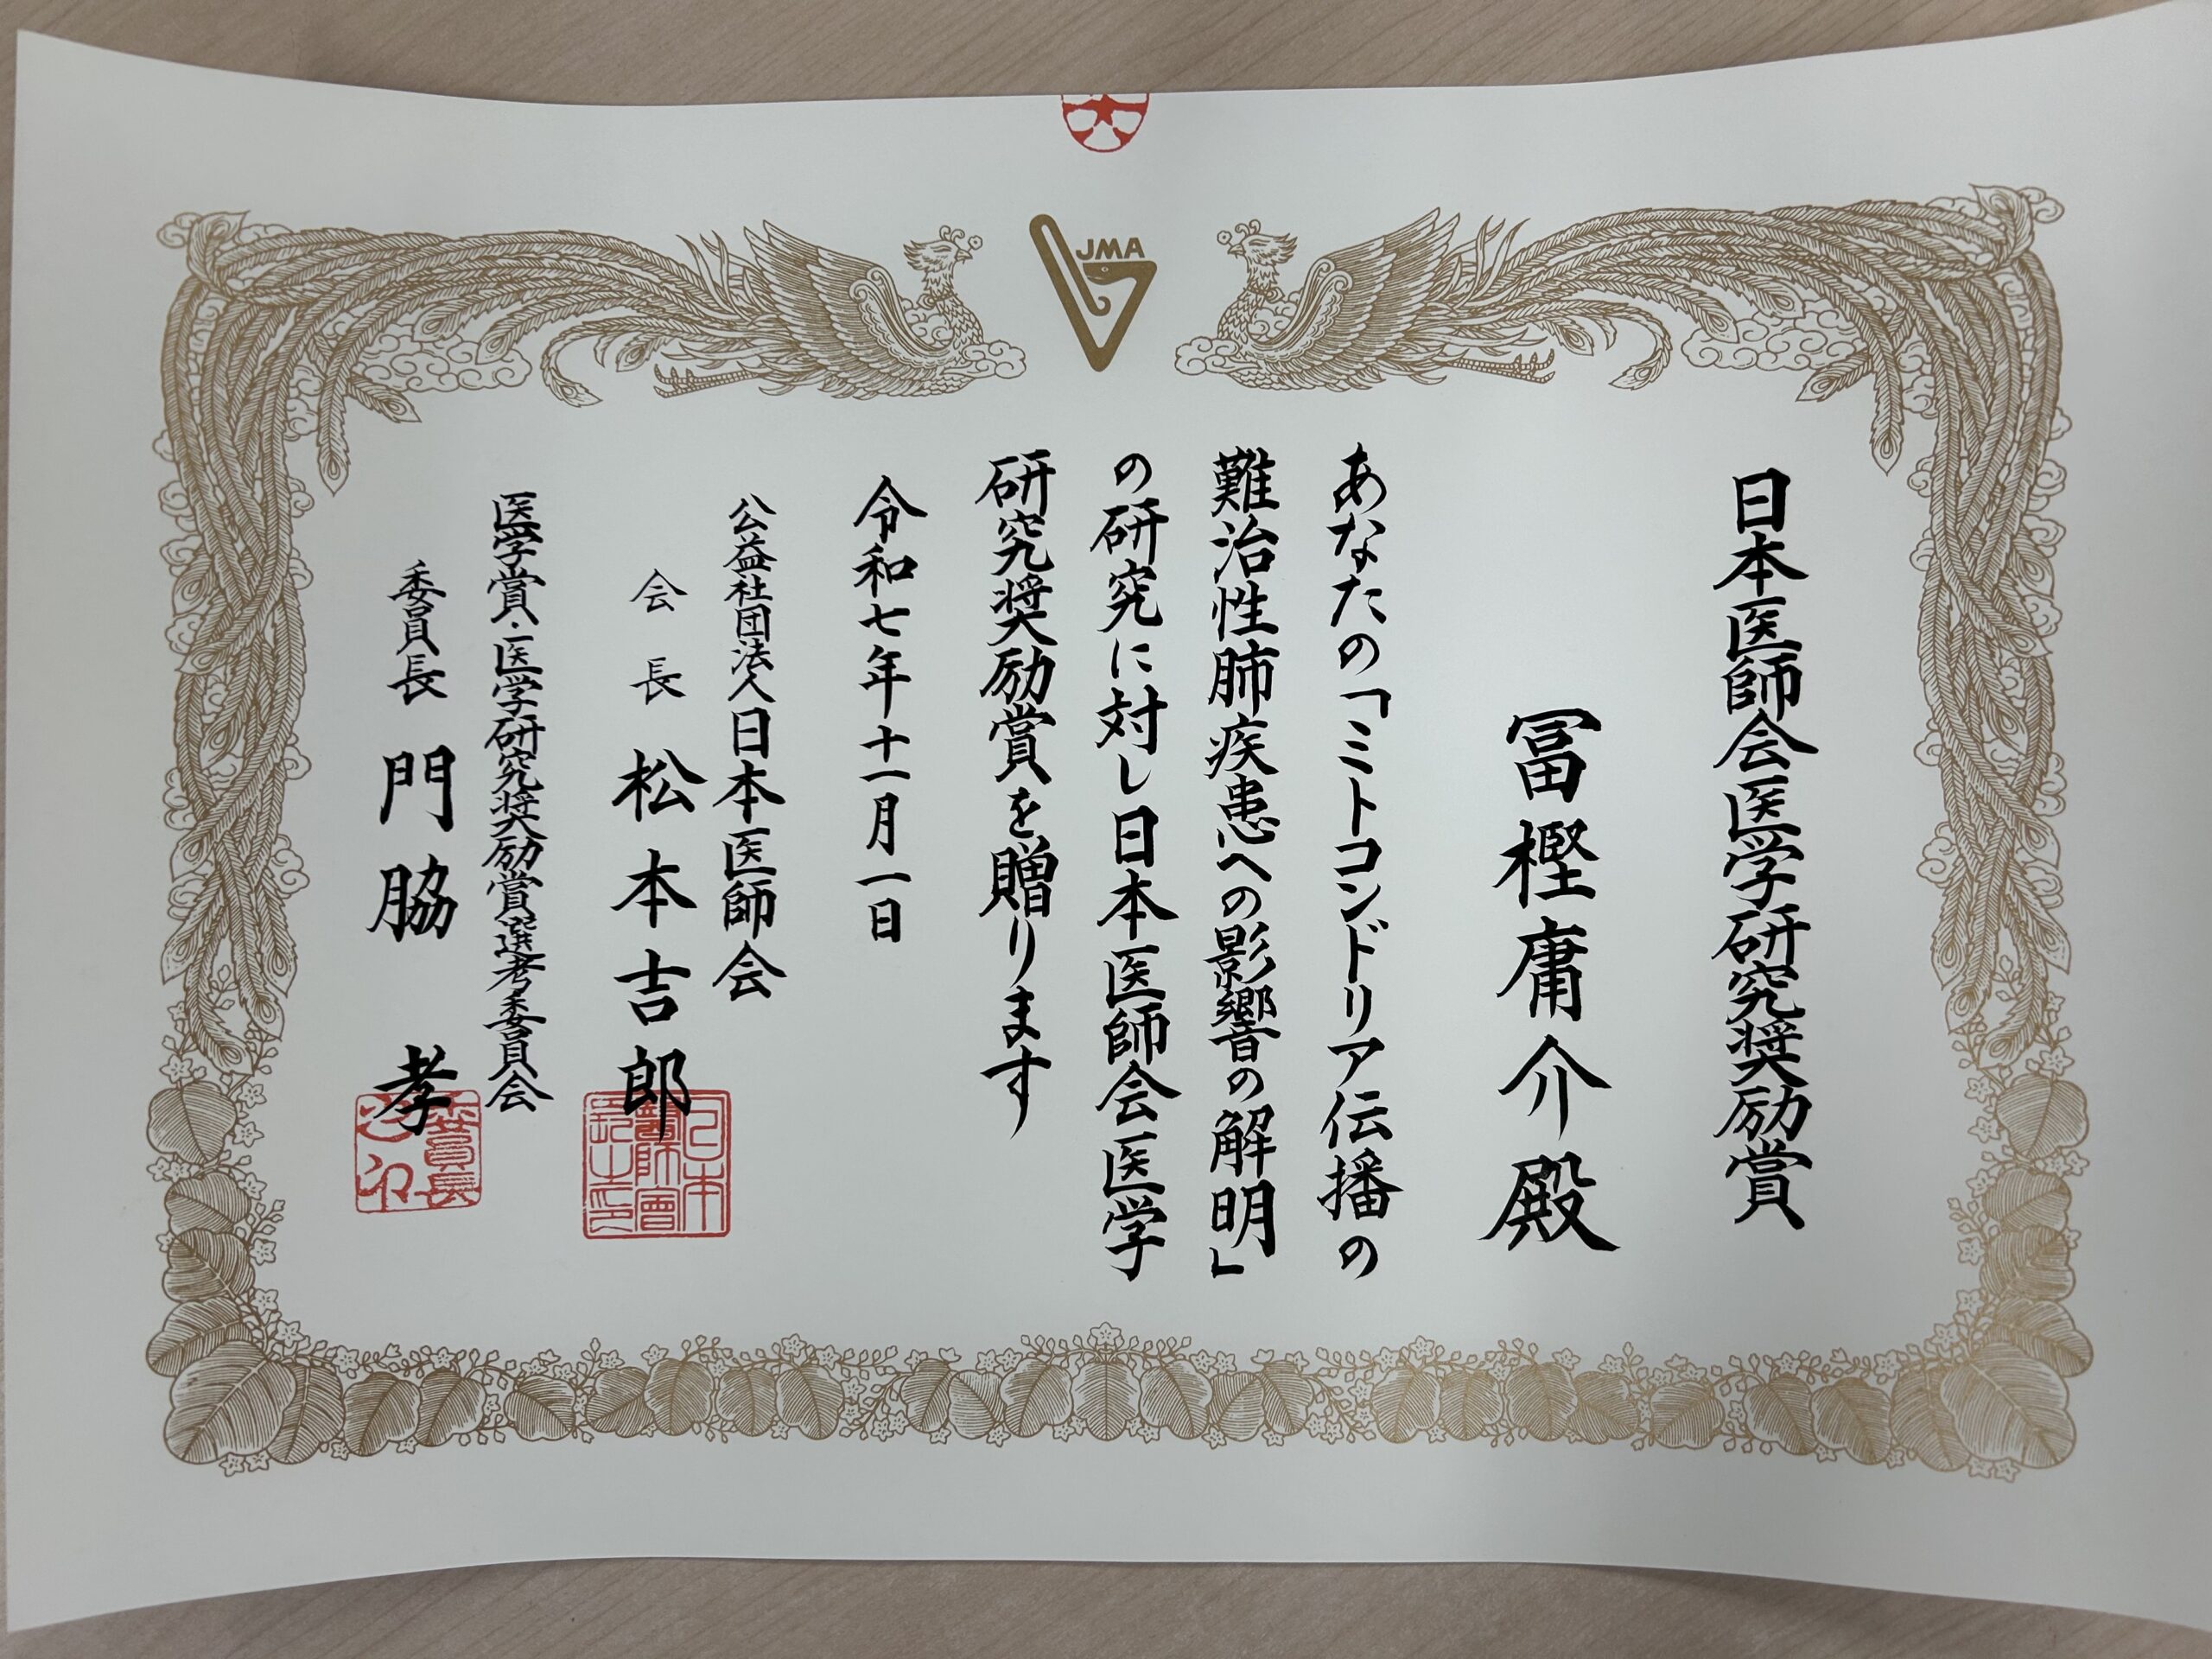 JMA
日本医師会医学研究奨励賞
冨樫庸介殿
あなたの「ミトコンドリア伝播の
難治性肺疾患への影響の解明」
の研究に対し日本医師会医学
研究奨励賞を贈ります
令和七年十一月一日
公益社団法人日本医師会
会長 松本吉郎
日本
醫師會
医学賞・医学研究奨励賞選考委員会
委員長 門脇 孝
委員長